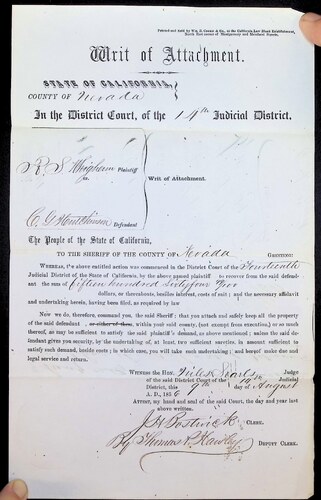 Printed and sold by
at the California Law Blank Establishment,
corner of Montgomery and Merchant Streets.
Writ of Attachment.
STATE OF CALIFORNIA,
COUNTY OF Nevada
In the District Court, of the 14th Judicial District.
R. S. Wigham Plaintiff
vs.
Writ of Attachment.
C. G. Hutchinson Defendant
The People of the State of California,
TO THE SHERIFF OF THE COUNTY OF Nevada GREETING:
WHEREAS, the above entitled action was commenced in the District Court of the Fourteenth
Judicial District of the State of California, by the above named plaintiff to recover from the said defend-
ant the sum of fifteen hundred sixty four
dollars, or thereabouts, besides interest, costs of suit; and the necessary affidavit
and undertaking herein, having been filed, as required by law
Now we do, therefore, command you, the said Sheriff; that you attach and safely keep all the property
of the said defendant, or either of them, within your said county, (not exempt from execution,) or so much
thereof, as may be sufficient to satisfy the said plaintiff's demand, as above mentioned; unless the said de-
fendant gives you security, by the undertaking of, at least, two sufficient sureties, in amount sufficient to
satisfy such demand, beside costs; in which case, you will take such undertaking; and hereof make due and
legal service and return.
WITNESS the HON. Niles Searls Judge
of the said District Court of the 14th Judicial
District, this 9th day of August
A. D., 1856
ATTEST, my hand and seal of said Court, the day and year last
above written.
J H Bostwick CLERK.
By Thomas P. Hawley DEPUTY CLERK.